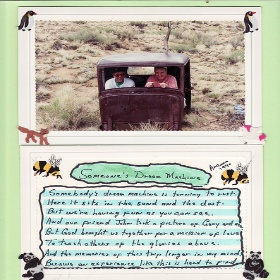 Someone's Dream Machine
Somebody's dream machine is turning to rust.
Here it sits in the sand and the dust.
But we're having fun as you can see.
And our friend John took a picture of Gary and me.
But God brought us together for a mission of love
To teach others of the glories above.
And the memories of this trip linger in my mind
Because an experience like this is hard to find.